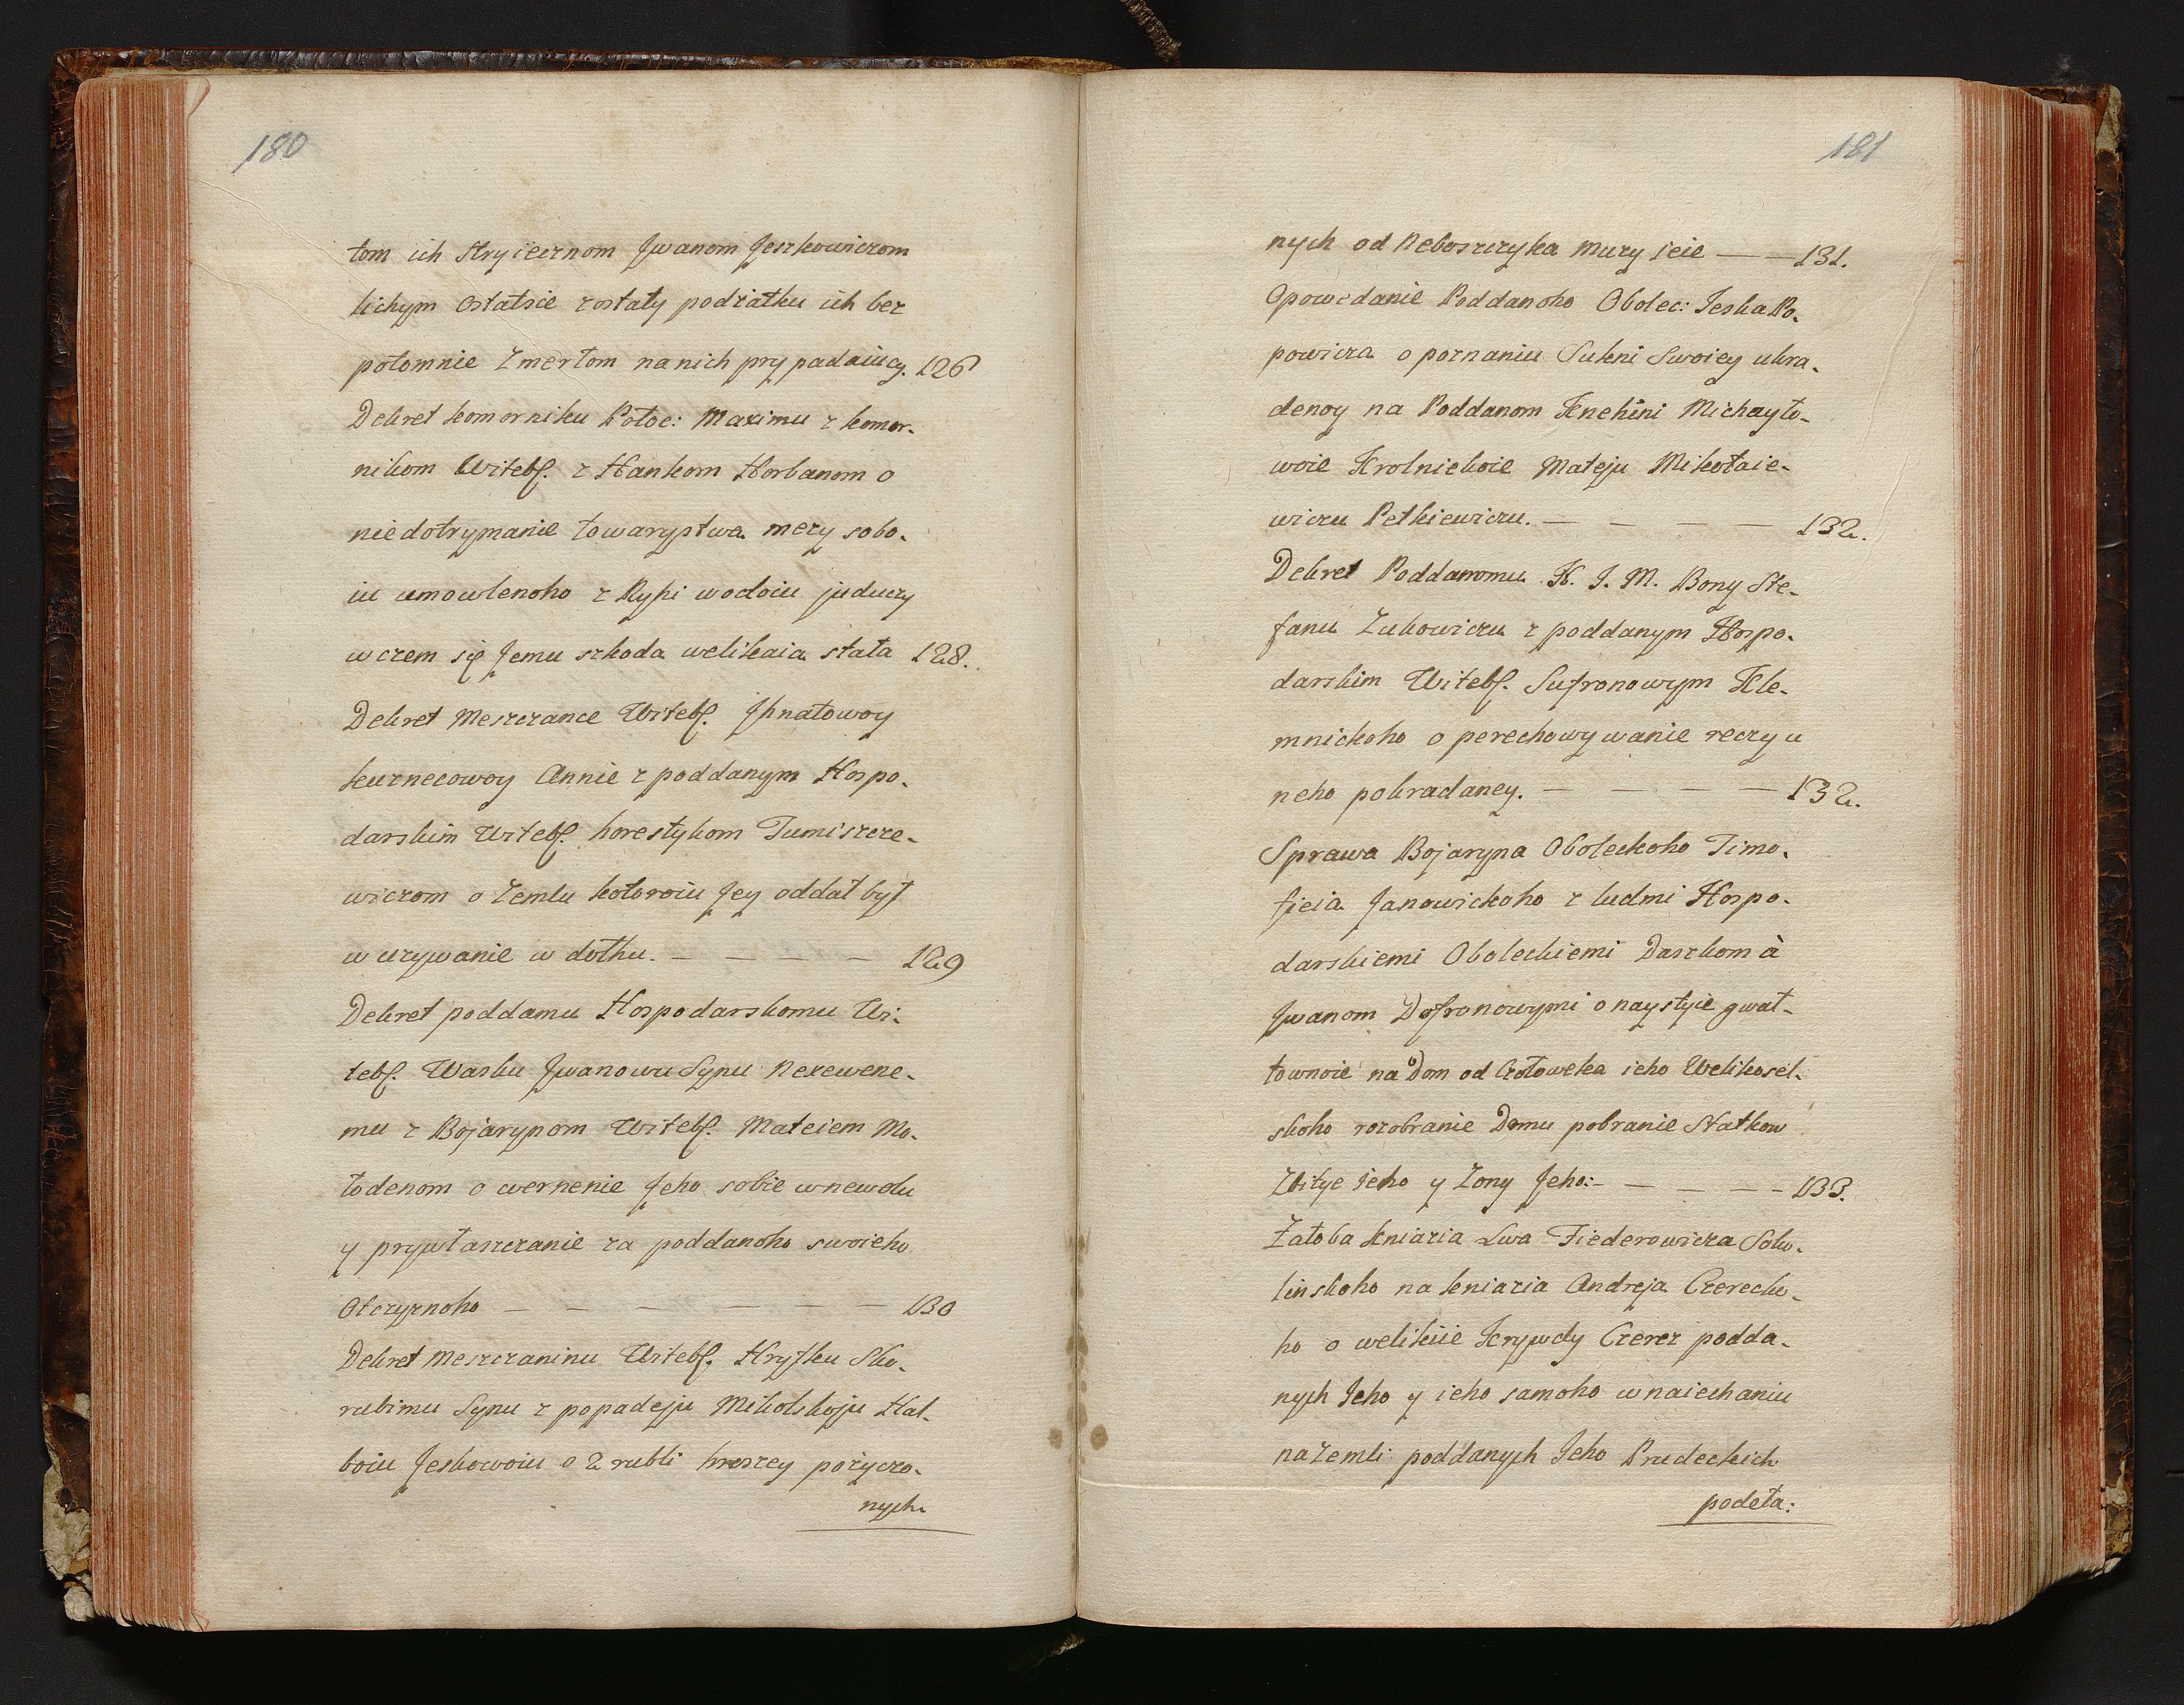 180
tom ich stryiecznom Jwanom Jeszkowiczom
lichym Ostatsie zostały podziatku ich bez
potomnie Zmertom na nich prypadaiucy. 126
Dekret komorniku Połoc: Maximu z komor-
nikom Witebſ. z Hankom Horbanom o
niedotrymanie towarystwa mezy sobo-
iu umowlenoho z Ryhi wodoiu juduczy
w czem się Jemu szkoda welikaia stała 128.
Dekret Meszczance Witebſ. Jhnatowoy
kuznecowoy Annie z poddanym Hospo-
darskim Witebſ. horestykom Tumiszcze-
wiczom o Zemlu kotoroiu Jey oddał był
w uzywanie w dołhu. — — — — 129
Dekret poddamu Hospodarskomu Wi-
tebſ. Wasku Jwanowu Synu Nexewene-
mu z Bojarynom Witebſ. Mateiem Mo-
łodenom o wernenie Jeho sobie w newolu
y prywłaszczanie za poddanoho swoieho
Otczyznoho — — — — — — 130
Dekret Meszczaninu Witebſ. Hryſku Sko-
rubimu Synu z popadeju Mikolskoju Hal-
boiu Jeskowoiu o 2 rubli hroszey pożyczo-
nych
181
nych od Neboszczyka muzy ieie — — 131.
Opowedanie Poddanoho Obolec: Jeska Po-
powicza o poznaniu Sukni Swoiey ukra-
denoy na Poddanom Knehini Michayło-
woie Krolnickoie Mateju Mikołaie-
wiczu Petkiewiczu. — — — — 132.
Dekret Poddanomu K. J. M. Bony Ste-
fanu Zukowiczu z poddanym Hospo-
darskim Witebſ. Sufronowym Kle-
mnickoho o perechowywanie reczy u
neho pokradaney. — — — — 132.
Sprawa Bojaryna Oboleckoho Timo-
fieia Janowickoho z ludmi Hospo-
darskiemi Oboleckiemi Daszkom à
Jwanom Dofronowymi o naystyie gwał-
townoie na Dom od Czołoweka ieho Welikosel-
skoho rozobranie Domu pobranie Statkow
Zbitye ieho y Zony Jeho:- — — — — 133.
Załoba kniazia Lwa Fiederowicza Soko-
linskoho na kniazia Andreja Czerecko-
ho o welikiie Krywdy Czerez podda-
nych Jeho y ieho samoho w naiechaniu
na Zemli poddanych Jeho Prudeckich
podeła: